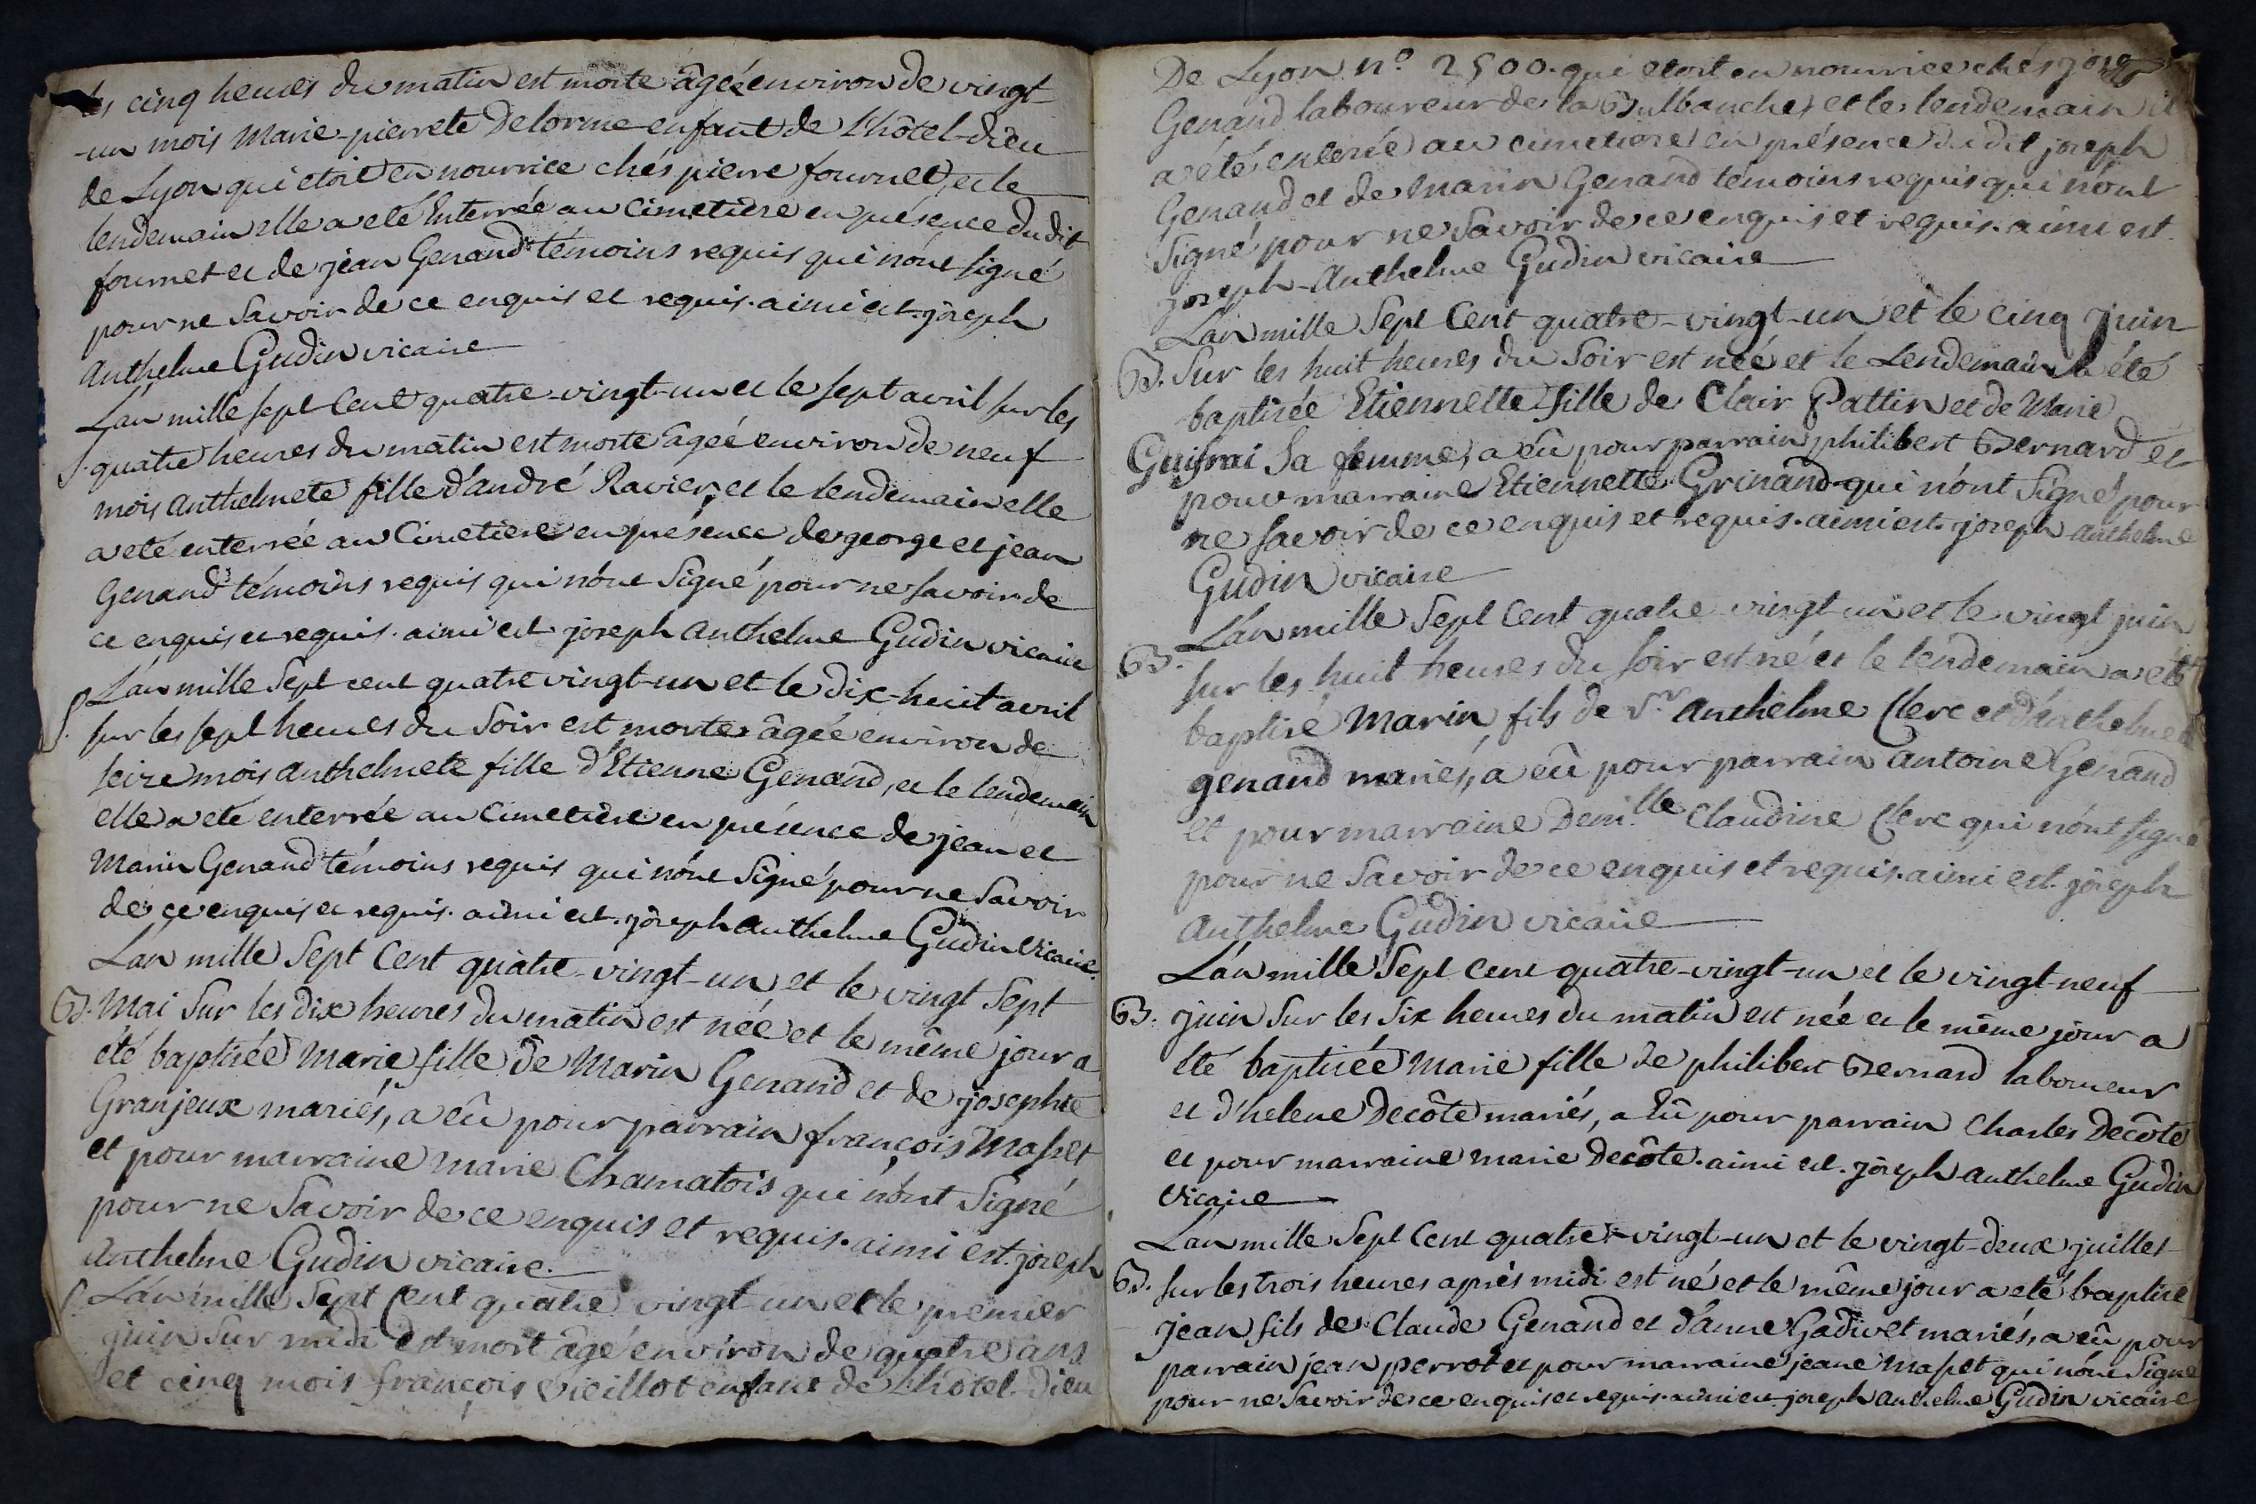 les cinq heures du matin est morte âgeé environ de vingt
-un mois Marie-pierrete Delorme enfant de L'hôtel-dieu
de Lyon qui etoit en nourrice chés pierre fournet, et le
lendemain elle a eté Enterrée au Cimetiere en présence dudit
fournet et de jean Genand témoins requis qui n'ont signé
pour ne Savoir de ce enquis et requis. ainsi est. joseph
Anthelme Gudin vicaire
L'an mille sept Cent quatre-vingt-un et le sept avril sur les
S. quatre heures du matin est morte âgeé environ de neuf
mois Anthelmete fille d'andré Ravier, et le lendemain elle
a eté enterrée au Cimetiere en présence de george et jean
Genand témoins requis qui n'ont Signé pour ne Savoir de
ce enquis et requis. ainsi est joseph Anthelme Gudin vicaire
L'an mille Sept cent quatre vingt-un et le dix-huit avril
S. sur les sept heures du Soir est morte âgeé environ de
seize mois Anthelmete fille d'Etienne Genand, et le lendemain
elle a eté enterrée au Cimetiere en présence de jean et
Marin Genand témoins requis qui n'ont Signé pour ne Savoir
de ce enquis et requis. ainsi est. joseph Anthelme Gudin vicaire.
L'an mille Sept Cent quatre-vingt-un et le vingt Sept
B. Mai Sur les dix heures du matin est neé et le même jour a
été baptisée Marie fille de Marin Genand et de josephte
Granjeux mariés, a eû pour parrain françois Masset
et pour marraine Marie Chamatois qui n'ont Signé
pour ne Savoir de ce enquis et requis. ainsi est. joseph
Anthelme Gudin vicaire.
S. L'an mille Sept Cent quatre vingt-un et le premier
juin Sur midi Est mort âgé environ de quatre ans
et cinq mois françois Vieillot enfant de L'hôtel-Dieu
De Lyon n.º 2500. qui etoit en nourrice chés joseph
Genand laboureur de la Bulbanche, et le lendemain il
a été enterré au cimetiere en présence du dit joseph
Genand et de Marin Genand témoins requis qui n'ont
Signé pour ne Savoir de ce enquis et requis. ainsi est.
joseph-Anthelme Gudin vicaire
L'an mille Sept Cent quatre-vingt-un et le cinq juin
B. Sur les huit heures du Soir est neé et le Lendemain a été
baptisée Etiennette fille de Clair Pattin et de Marie
Guifrai Sa femme, a eû pour parrain philibert Bernard et
pour marraine Etiennette Grinand qui n'ont Signé pour
ne savoir de ce enquis et requis. ainsi est. joseph Anthelme
Gudin vicaire
L'an mille Sept Cent quatre vingt-un et le vingt juin
B. sur les huit heures du soir est né et le lendemain a eté
baptisé Marin fils de S.r Anthelme Clerc et d'Anthelmete
genand mariés, a eû pour parrain Antoine Genand
et pour marraine Dem.lle Claudine Clerc qui n'ont signé
pour ne Savoir de ce enquis et requis. ainsi est. joseph
Anthelme Gudin vicaire
L'an mille Sept Cent quatre-vingt-un et le vingt-neuf
B. juin Sur les Six heures du matin est neé et le même jour a
été baptiseé Marie fille de philibert Bernard laboureur
et d'helene Decôte mariés, a Eû pour parrain Charles Decôte
et pour marraine Marie Decôte. ainsi est. joseph Anthelme Gudin
Vicaire
L'an mille Sept Cent quatre-vingt-un et le vingt-deux juillet
B. sur les trois heures après midi est né et le même jour a eté baptisé
jean fils de Claude Genand et d'anne Gadivet mariés, a eû pour
parrain jean perrot et pour marraine jeane Masset qui n'ont Signé
pour ne Savoir de ce enquis et requis. ainsi est joseph Anthelme Gudin vicaire